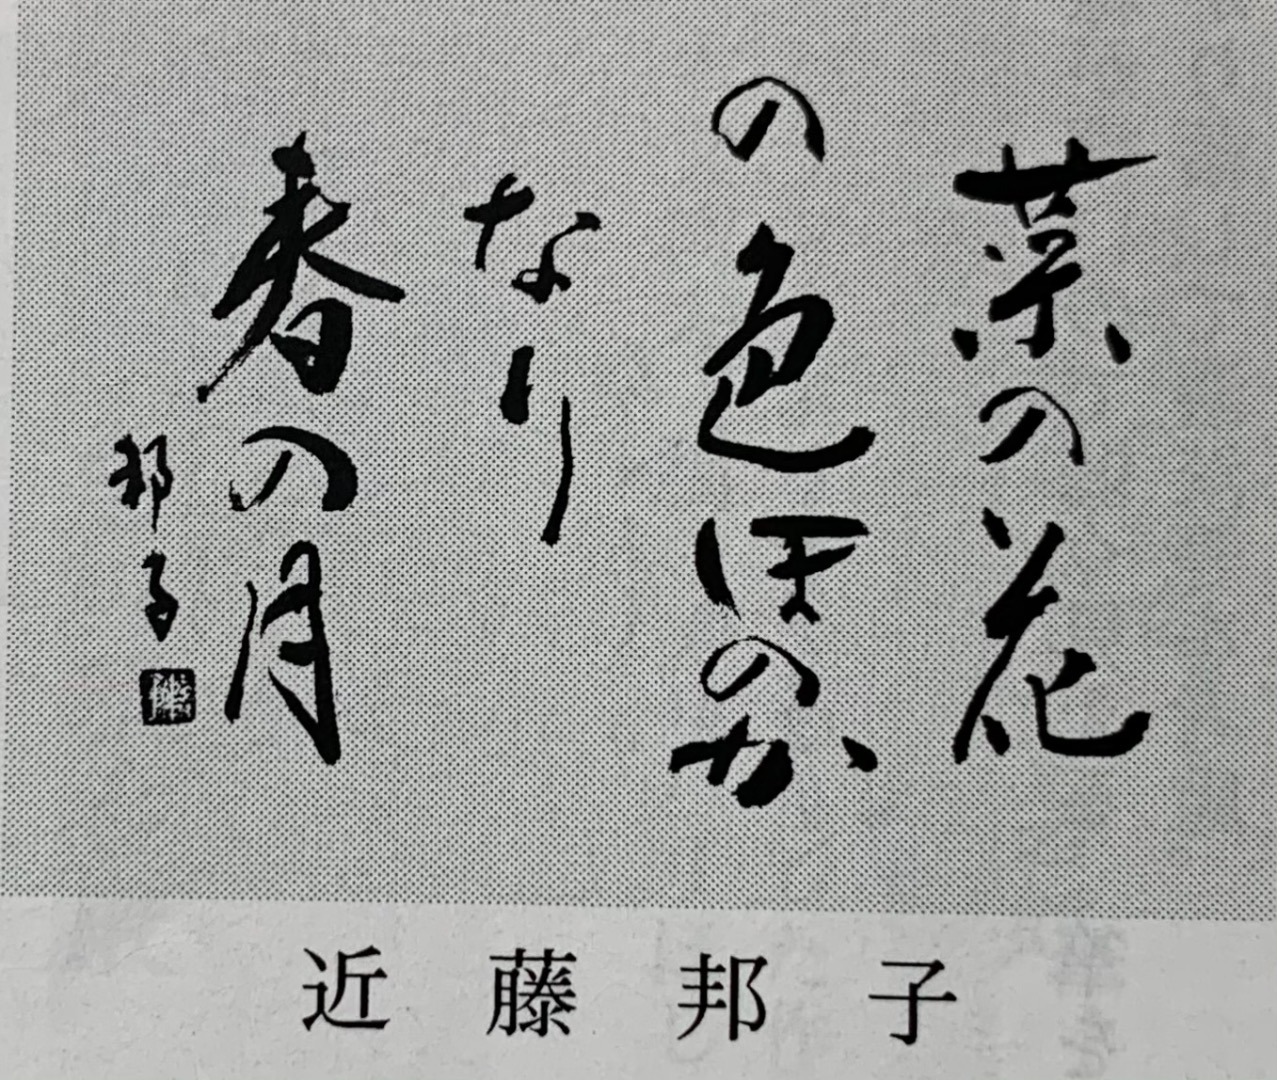 菜の花
の色ほのか
なり
春の月
邦子
近藤邦子